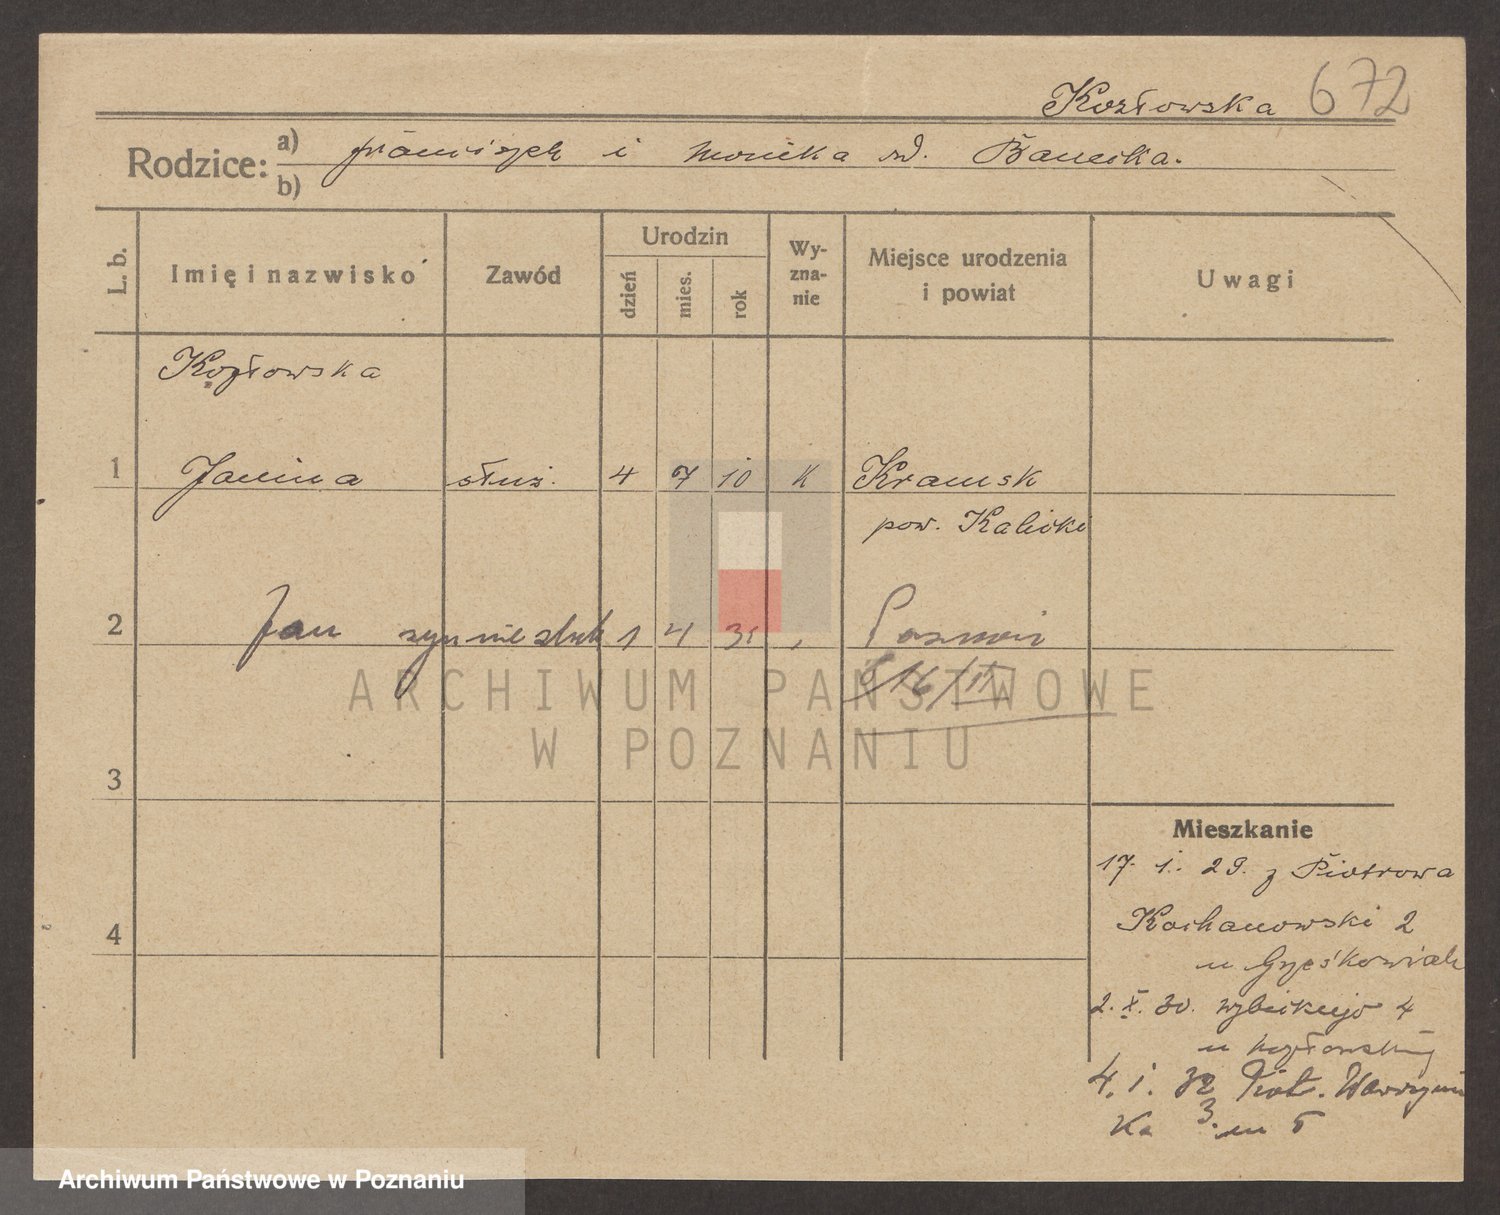 Kozłowska 672
Rodzice: a) Franciszek i Monika
b)
L. b.
Imię i nazwisko
Zawód
Urodzin
dzień
mies.
rok
Wy-
zna-
nie
Miejsce urodzenia
i powiat
Uwagi
Kozłowska
1 Janina służ. 4 7 10 K Kramsk
pow. Kaliski
2 Jan syn nieślub 1 4 31 Poznań
ARCHIWUM PAŃSTWOWE
W POZNANIU
3
Mieszkanie
17. 1. 29. z Piotrowa
4
Kochanowski 2
u Grześkowiak
2. X. 30. 4
u Kozłowskiej
4. I. 32 Wawrzyni
ka 3. m 5
Archiwum Państwowe w Poznaniu